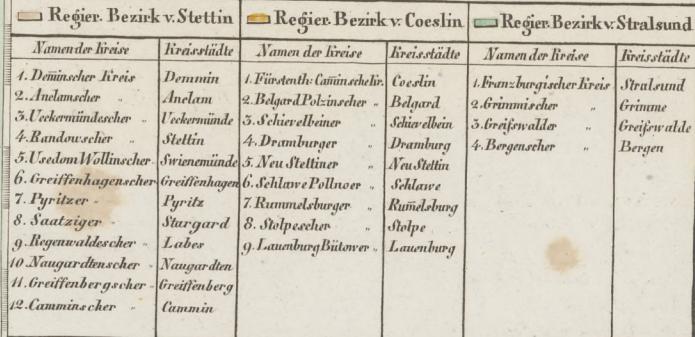 Regier. Bezirk v. Stettin
Namen der Kreise Kreisstädte
1. Deminscher Kreis Demmin
2. Anclamscher " Anclam
3. Ueckermündescher " Ueckermünde
4. Randowscher " Stettin
5. Usedom Wollinscher " Swienemünde
6. Greiffenhagenscher Greiffenhagen
7. Pyritzer " Pyritz
8. Saatziger " Stargard
9. Regenwaldescher " Labes
10. Naugardtenscher " Naugardten
11. Greiffenbergscher " Greiffenberg
12. Camminscher " Cammin
Regier. Bezirk v. Coeslin
Namen der Kreise Kreisstädte
1. Fürstenth: Cam̄insche Kr. Coeslin
2. Belgard Polzinscher " Belgard
3. Schievelbeiner " Schievelbein
4. Dramburger " Dramburg
5. Neu Stettiner " Neu Stettin
6. Schlawe Pollnoer " Schlawe
7. Rummelsburger " Rum̄elsburg
8. Stolpescher " Stolpe
9. Lauenburg Bütower " Lauenburg
Regier. Bezirk v. Stralsund
Namen der Kreise Kreisstädte
1. Franzburgischer Kreis Stralsund
2. Grimmischer " Grimme
3. Greifswalder " Greifswalde
4. Bergenscher " Bergen